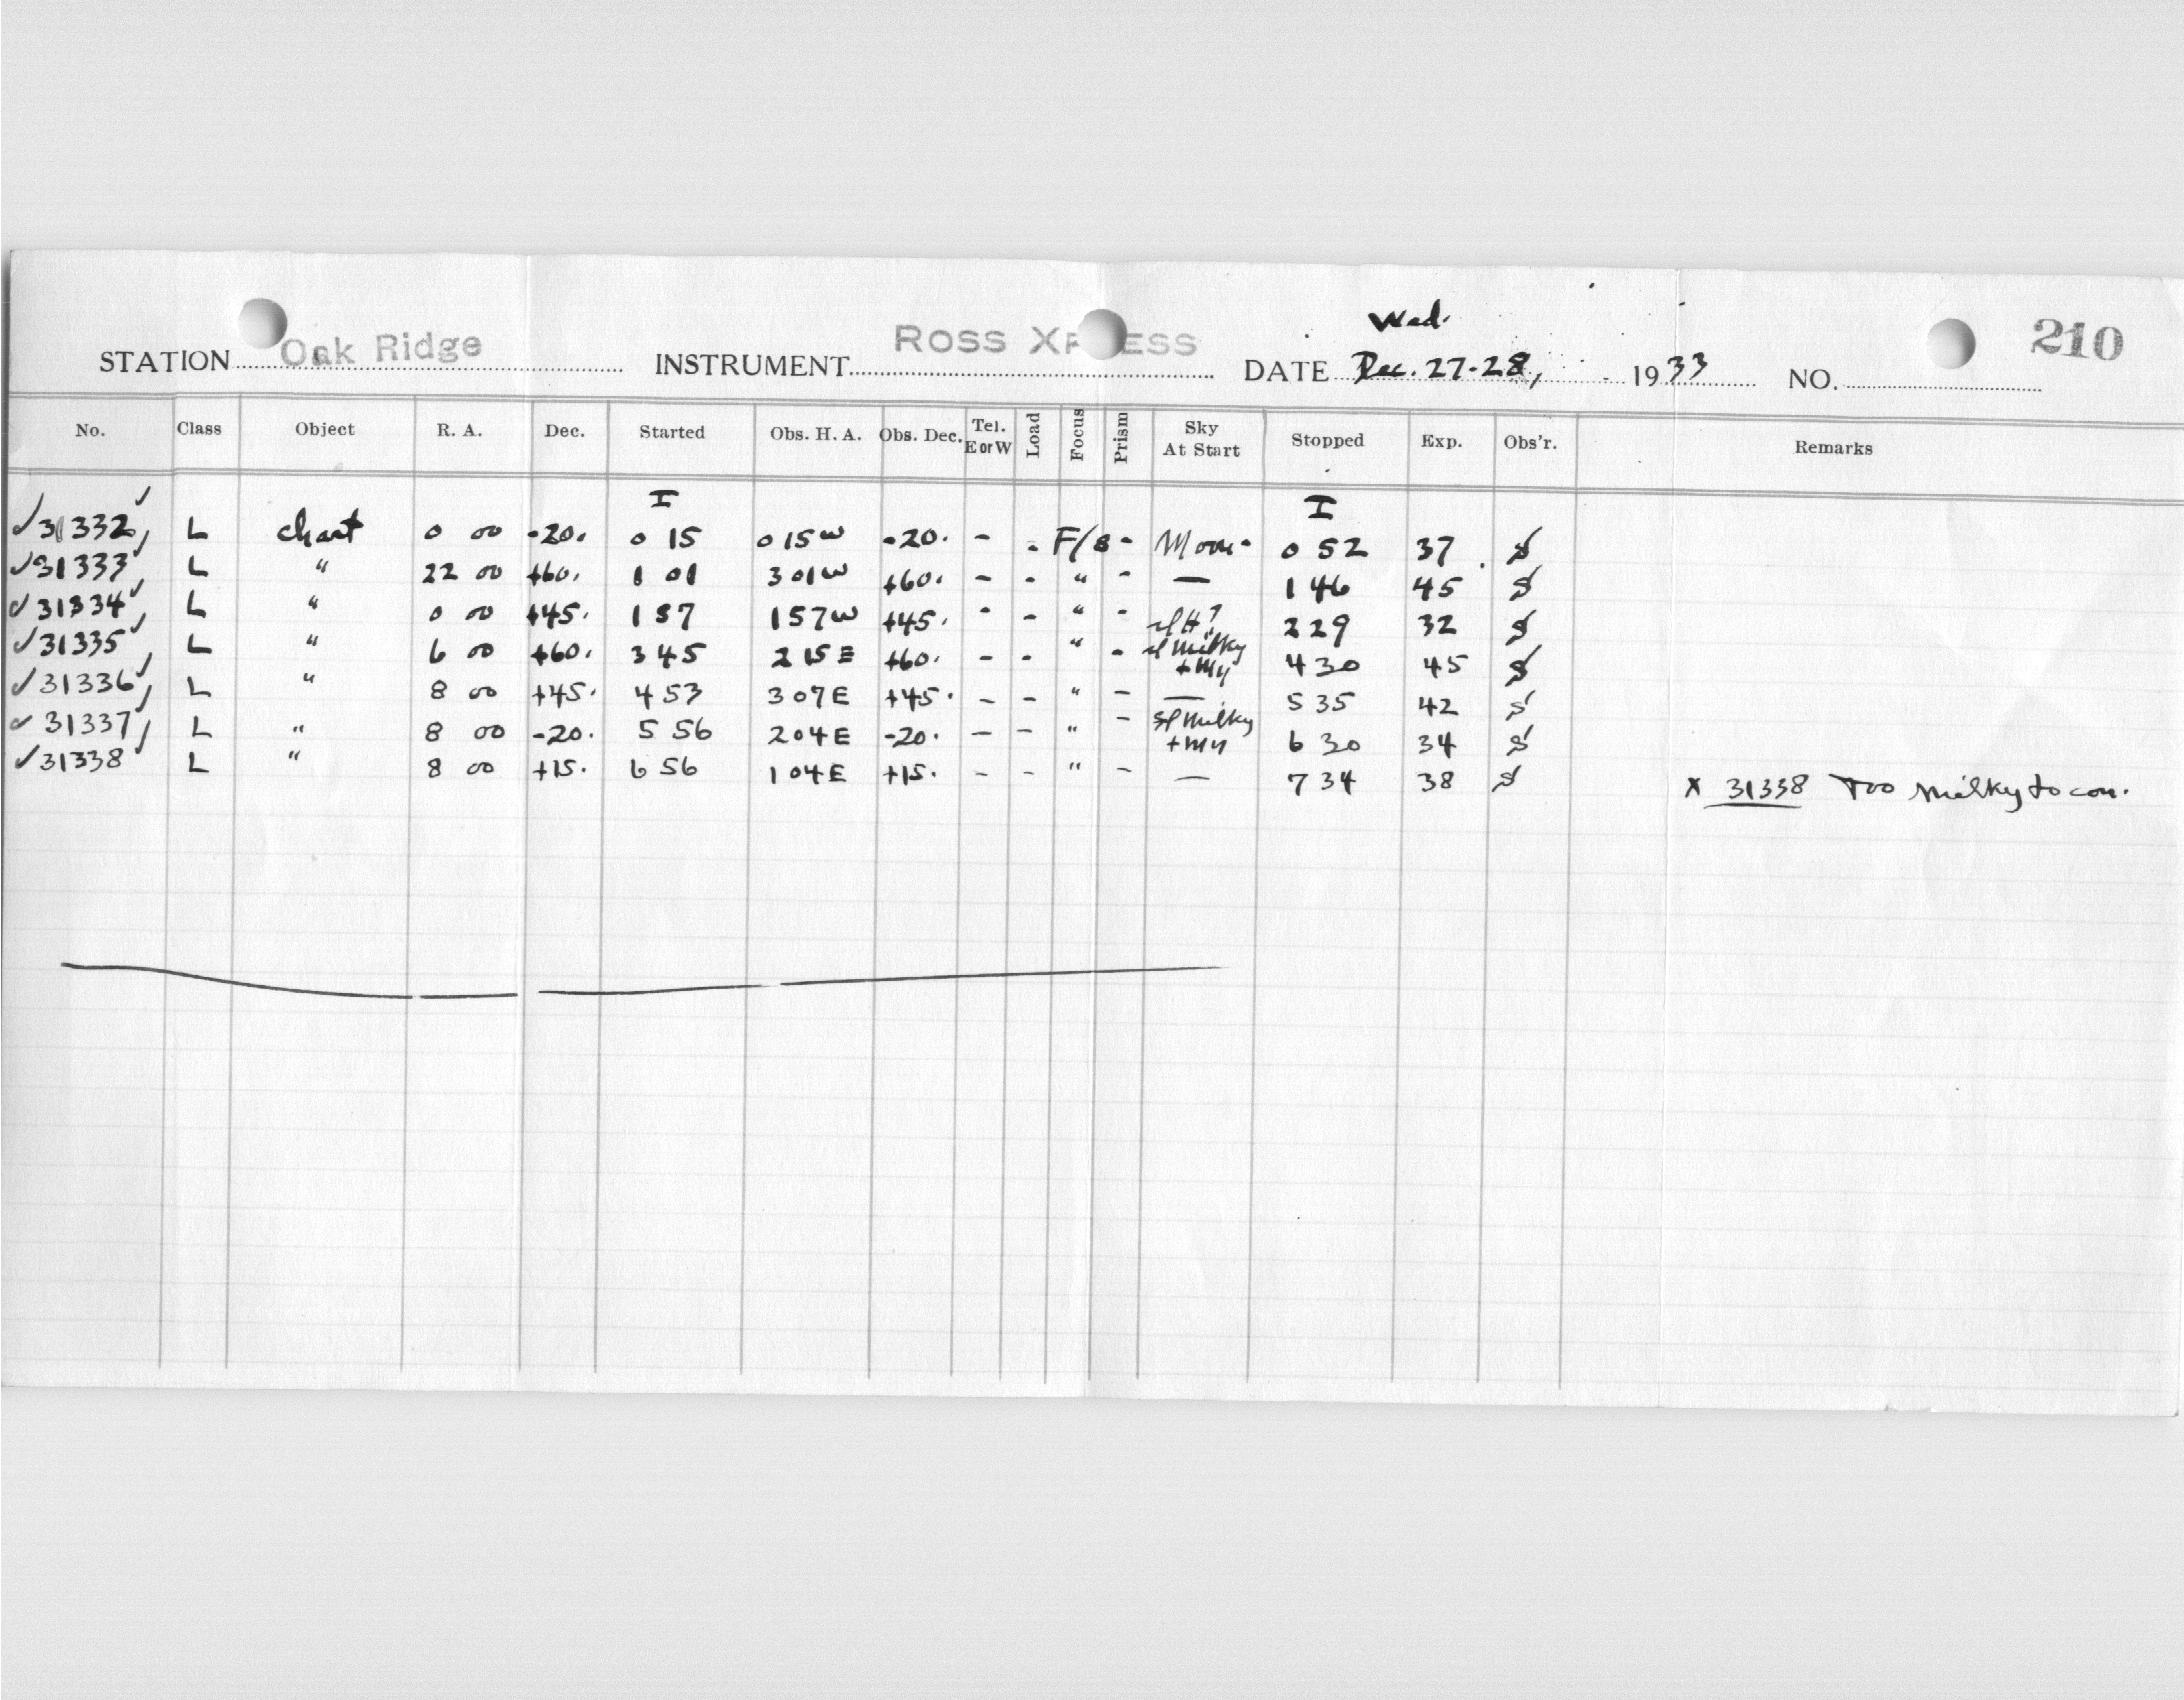 Wed.
STATION Oak Ridge INSTRUMENT ROSS XPRESS DATE Dec. 27-28, 1933 NO. 210
No. Class Object R. A. Dec. Started Obs. H. A. Obs. Dec. Tel. E or W Load Focus Prism Sky At Start Stopped Exp. Obs'r. Remarks
I I
✓31332✓ L chart 0 00 -20. 0 15 0 15 W -20. - - F/8 - Moon - 0 52 37 S
✓31333✓ L " 22 00 +60. 1 01 3 01 W +60. - - " - — 1 46 45 S
✓31334✓ L " 0 00 +45. 1 57 1 57 W +45. - - " - sl H? 2 29 32 S
✓31335✓ L " 6 00 +60. 3 45 2 15 E +60. - - " - sl milky + my 4 30 45 S
✓31336✓ L " 8 00 +45. 4 53 3 07 E +45. - - " - — 5 35 42 S
✓31337✓ L " 8 00 -20. 5 56 2 04 E -20. - - " - sl milky + my 6 30 34 S
✓31338✓ L " 8 00 +15. 6 56 1 04 E +15. - - " - — 7 34 38 S x 31338 Too milky to con.